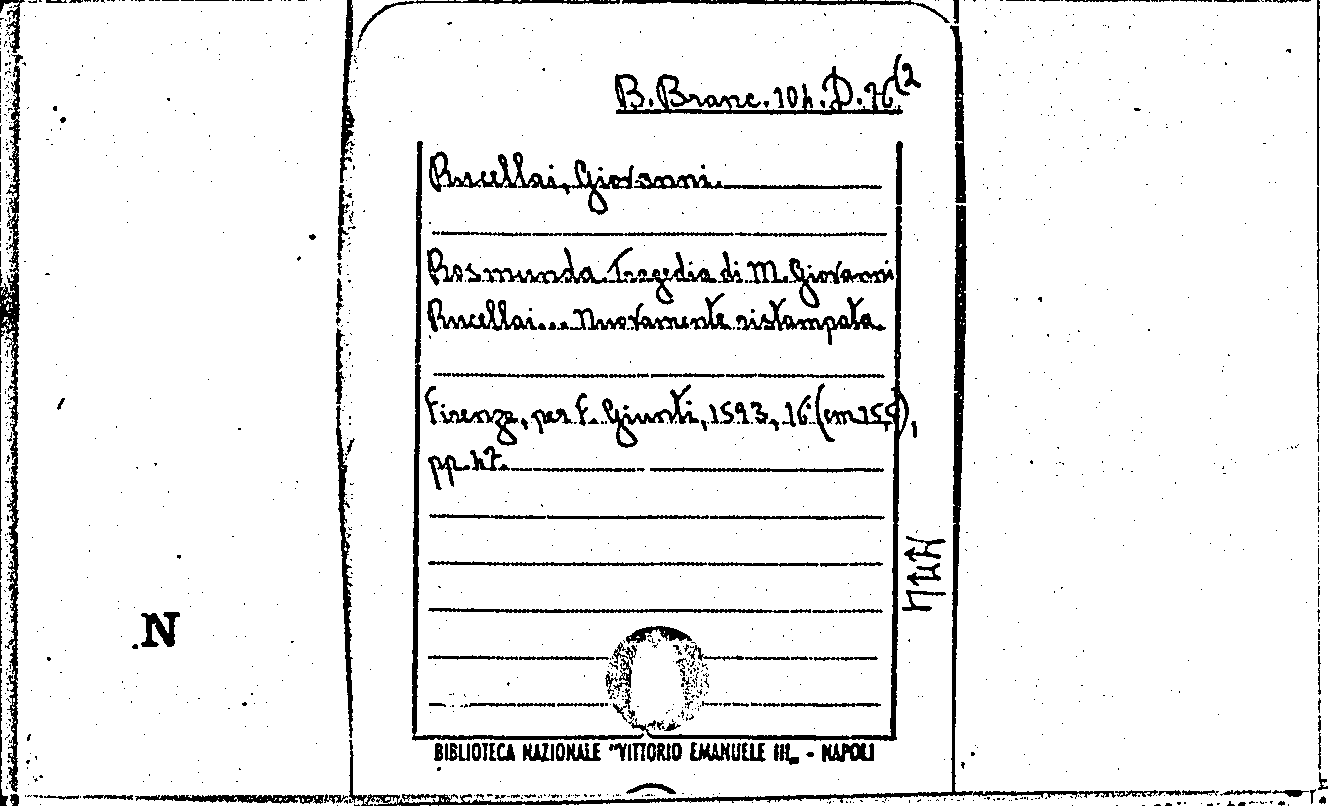 B. Branc. 104. D. 76(2
Rucellai, Giovanni.
Rosmunda Tragedia di M. Giovanni
Rucellai... Nuovamente ristampata.
Firenze, per F. Giunti, 1593, 16° (cm 15,5),
pp. 47.
N
BIBLIOTECA NAZIONALE "VITTORIO EMANUELE III„ - NAPOLI